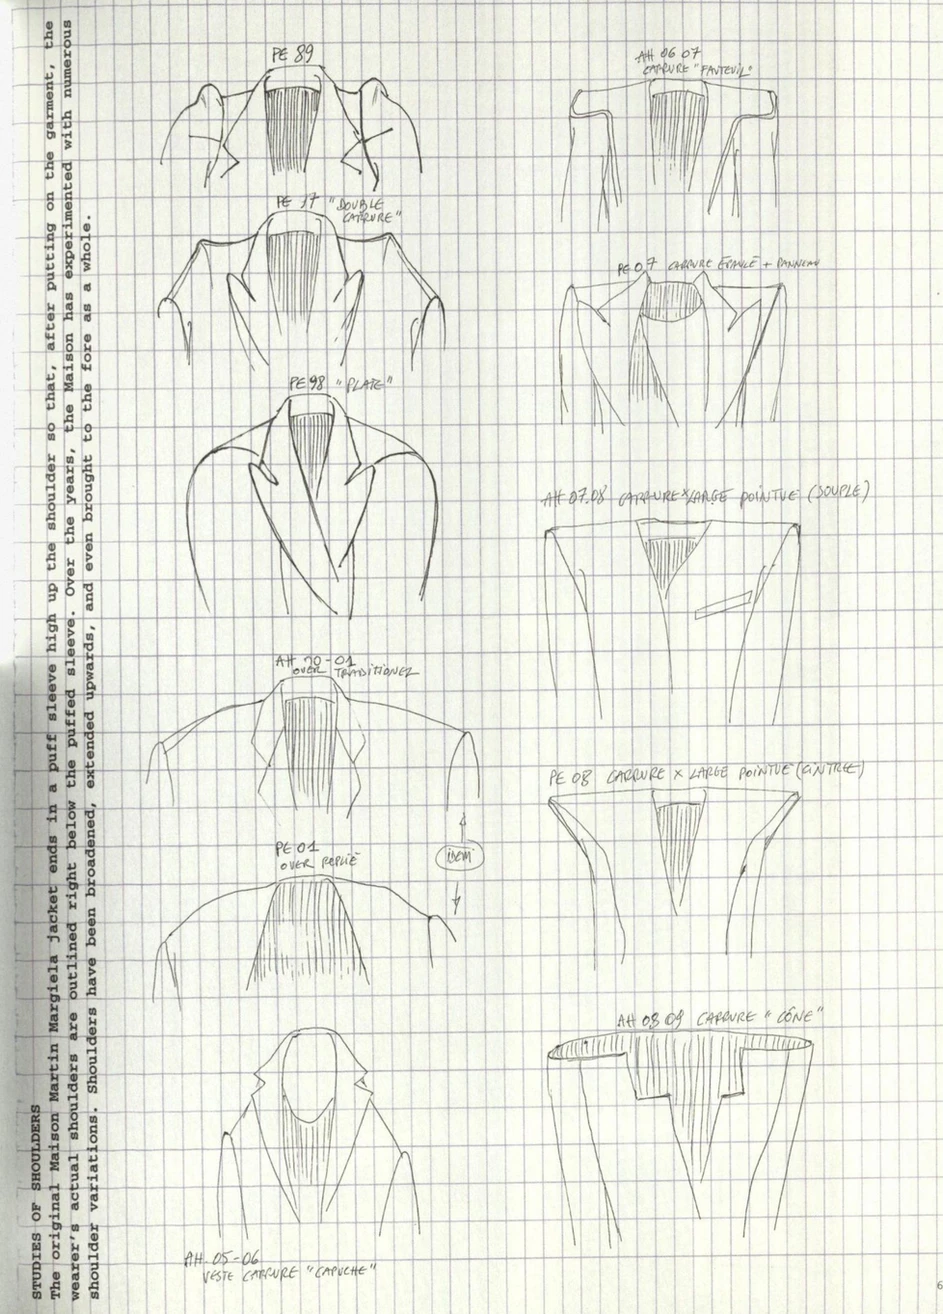 STUDIES OF SHOULDERS
The original Maison Martin Margiela jacket ends in a puff sleeve high up the shoulder so that, after putting on the garment, the
wearer's actual shoulders are outlined right below the puffed sleeve. Over the years, the Maison has experimented with numerous
shoulder variations. Shoulders have been broadened, extended upwards, and even brought to the fore as a whole.
PE 89
PE 97 "DOUBLE
CARRURE"
PE 98 "PLATE"
AH 00-01
OVER TRADITIONEL
PE 01
OVER REPLIÉ
idem
AH 05-06
VESTE CARRURE "CAPUCHE"
AH 06 07
CARRURE "FAUTEUIL"
PE 07 CARRURE ÉPAULE + PANNEAU
AH 07.08 CARRURE X LARGE POINTUE (SOUPLE)
PE 08 CARRURE X LARGE POINTUE (CINTRÉE)
AH 08 09 CARRURE "CÔNE"
6